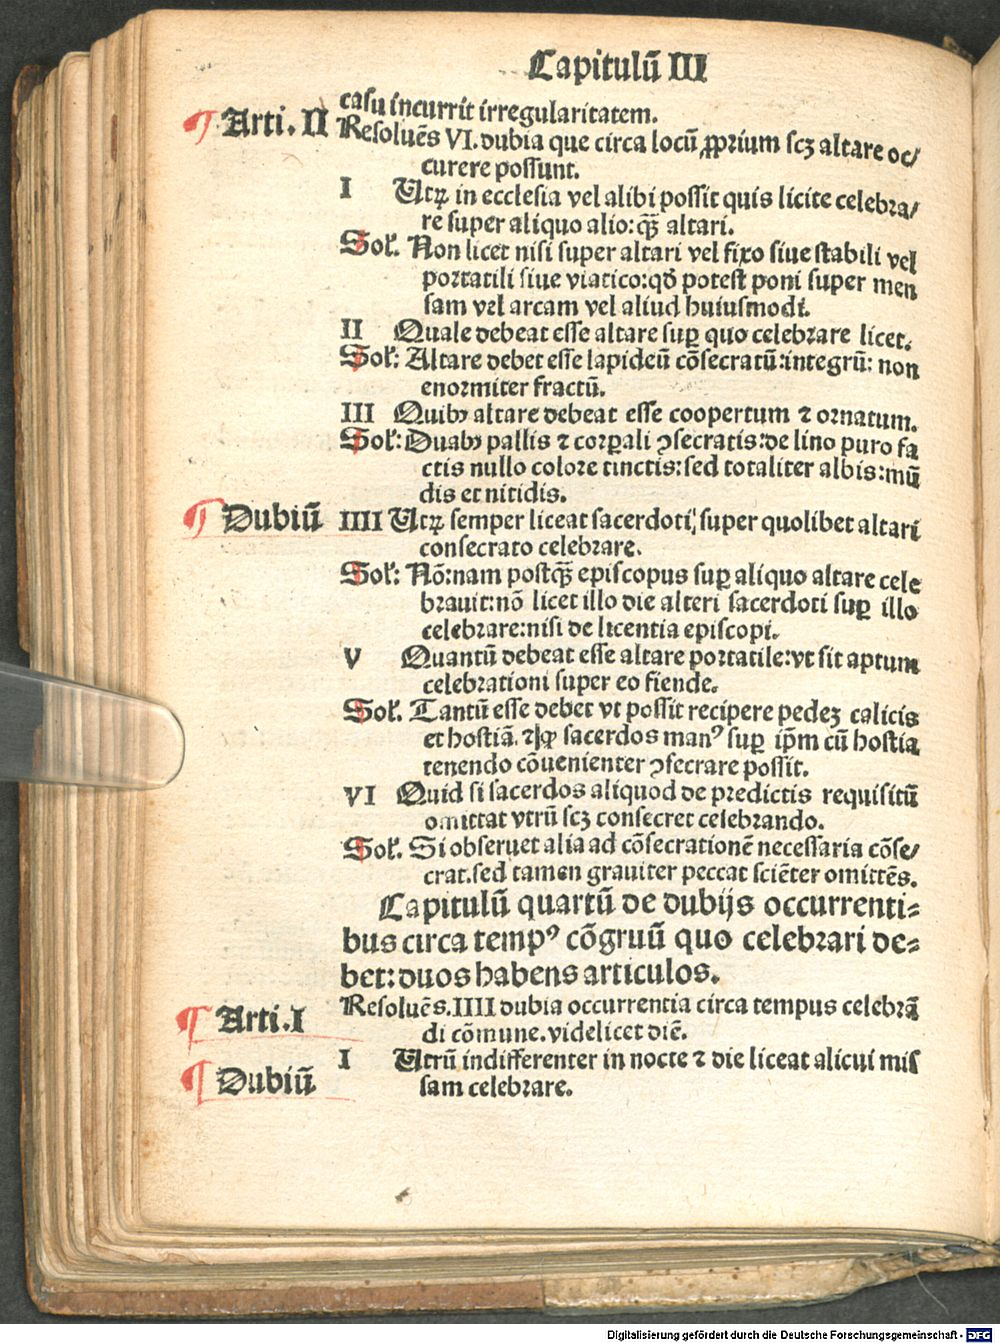 Capitulū III
casu incurrit irregularitatem.
Arti. II Resoluēs VI. dubia que circa locū ꝓprium scꝫ altare oc/
curere possunt.
I Utꝝ in ecclesia vel alibi possit quis licite celebra/
re super aliquo alio: qꝫ̄ altari.
Sol. Non licet nisi super altari vel fixo siue stabili vel
portatili siue viatico: qđ potest poni super men
sam vel arcam vel aliud huiusmodi.
II Quale debeat esse altare suꝑ quo celebrare licet.
Sol: Altare debet esse lapideū cōsecratū: integrū: non
enormiter fractū.
III Quibꝰ altare debeat esse coopertum ⁊ ornatum.
Sol: Duabꝰ pallis ⁊ corꝑali ꝯsecratis: de lino puro fa
ctis nullo colore tinctis: sed totaliter albis: mū
dis et nitidis.
Dubiū IIII Utꝝ semper liceat sacerdoti, super quolibet altari
consecrato celebrare.
Sol: Nō: nam postqꝫ̄ episcopus suꝑ aliquo altare cele
brauit: nō licet illo die alteri sacerdoti suꝑ illo
celebrare: nisi de licentia episcopi.
V Quantū debeat esse altare portatile: vt sit aptum
celebrationi super eo fiende.
Sol. Tantū esse debet vt possit recipere pedeꝫ calicis
et hostiā. ⁊ ꝙ sacerdos manꝰ suꝑ ip̄m cū hostia
tenendo cōuenienter ꝯsecrare possit.
VI Quid si sacerdos aliquod de predictis requisitū
omittat vtrū scꝫ consecret celebrando.
Sol. Si obseruet alia ad cōsecrationē necessaria cōse/
crat. sed tamen grauiter peccat sciēter omittēs.
Capitulū quartū de dubijs occurrenti=
bus circa tempꝰ cōgruū quo celebrari de=
bet: duos habens articulos.
Arti. I Resoluēs. IIII dubia occurrentia circa tempus celebrā
di cōmune. videlicet diē.
Dubiū I Utrū indifferenter in nocte ⁊ die liceat alicui mis
sam celebrare.
Digitalisierung gefördert durch die Deutsche Forschungsgemeinschaft - DFG